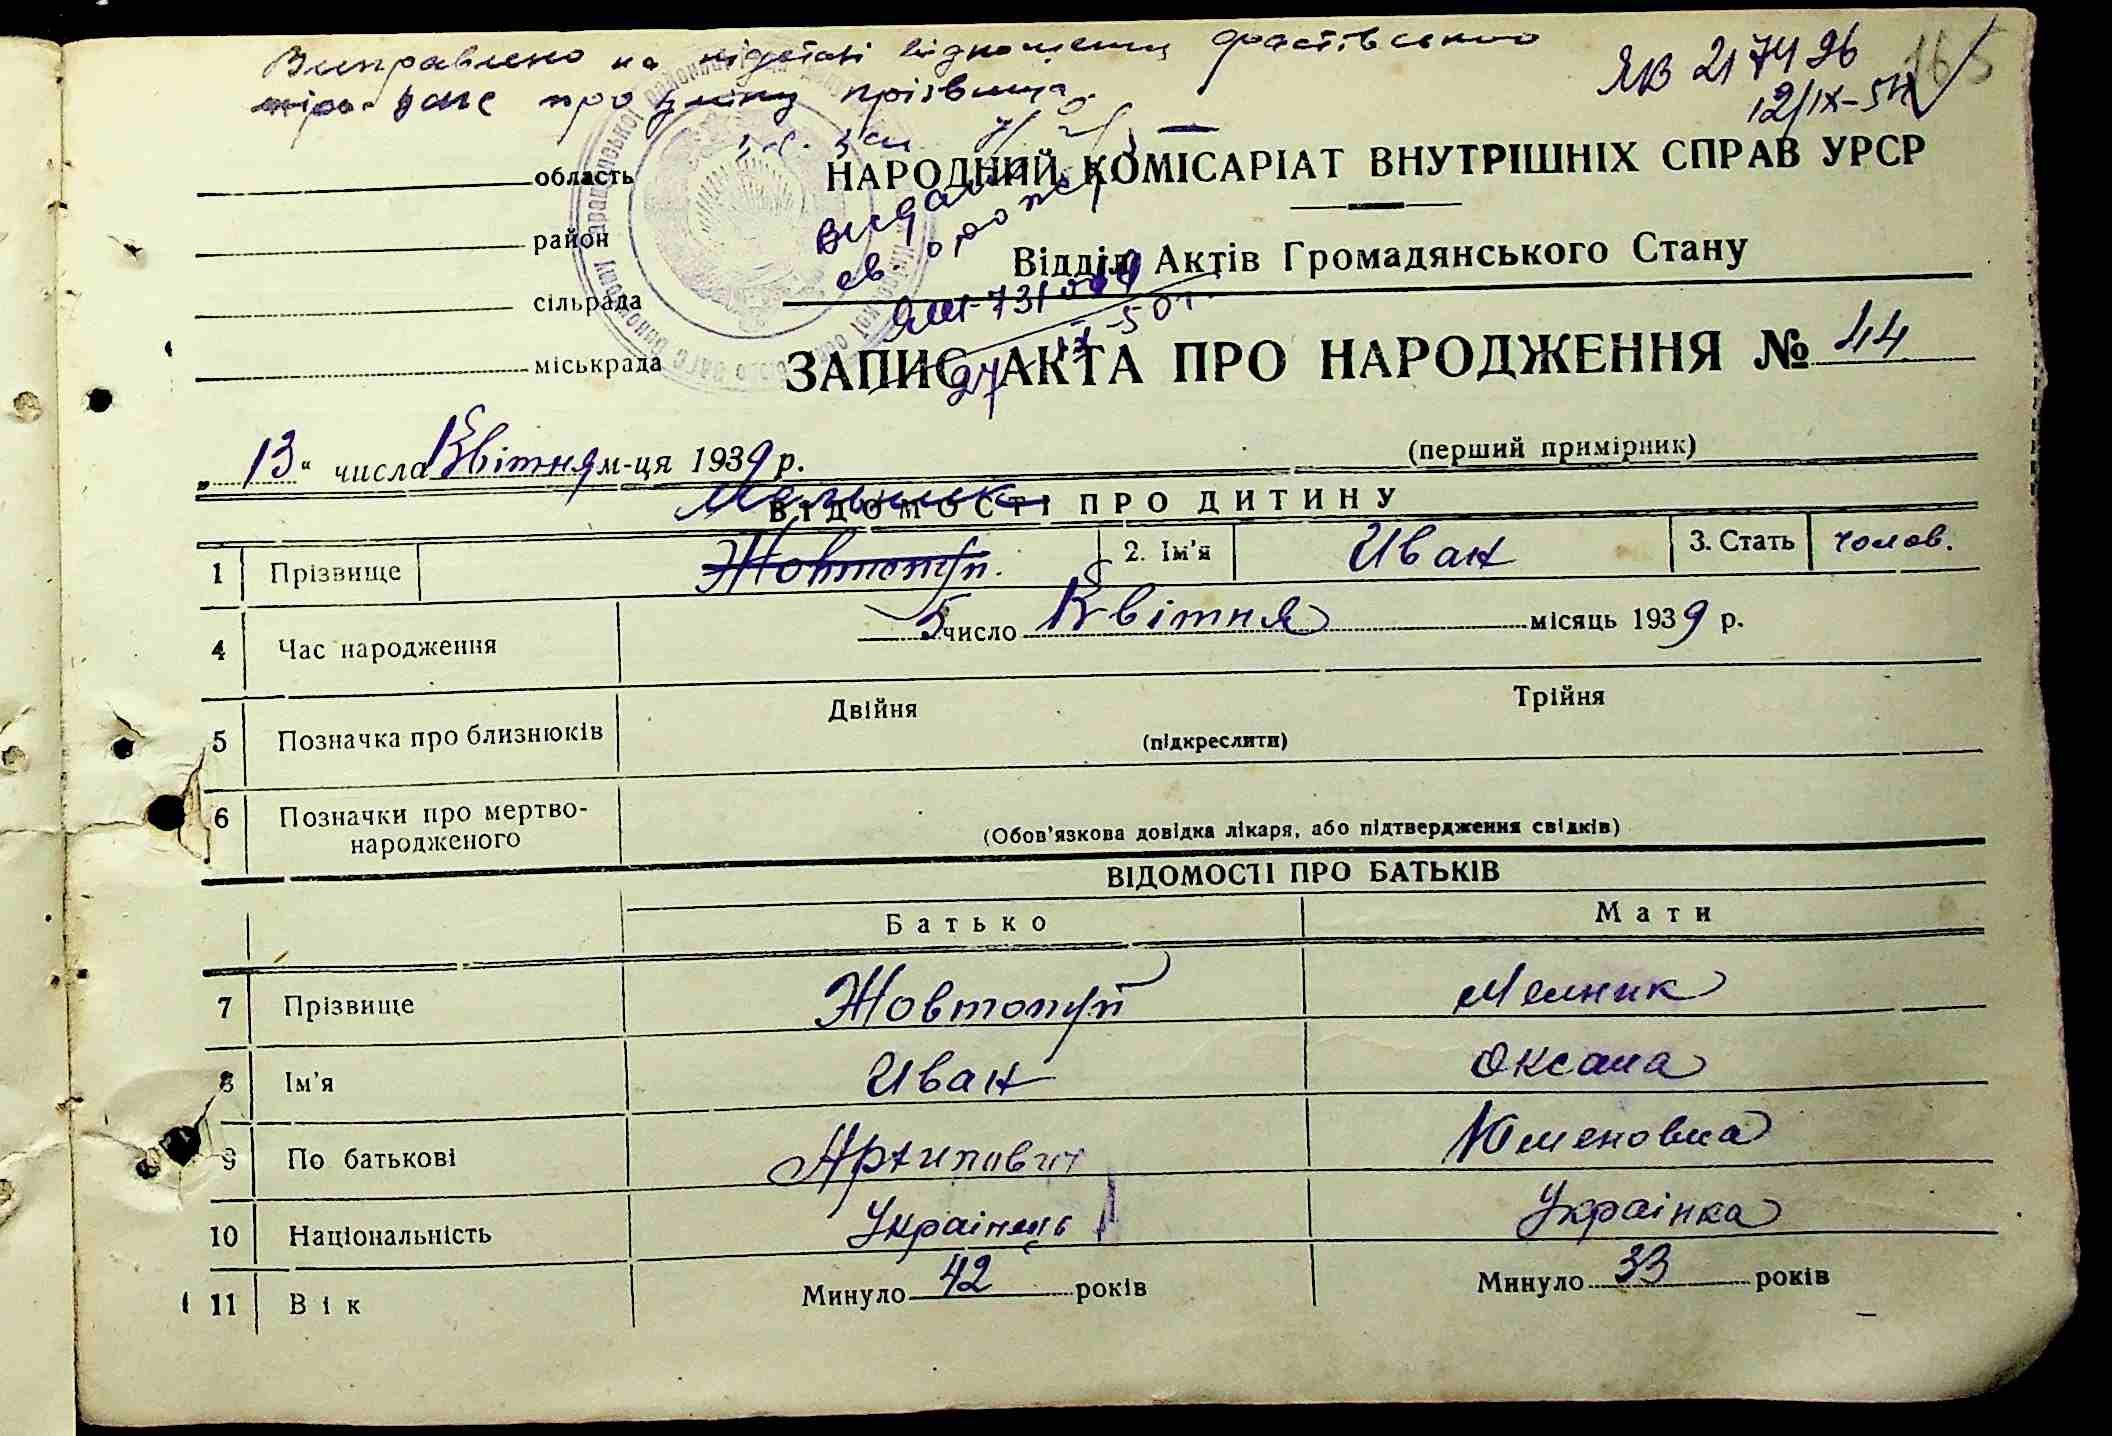 Виправлено на підставі відношення Фастівського
про зміну прізвища.
ЯВ 217496
12/IX-54
165
область
НАРОДНИЙ КОМІСАРІАТ ВНУТРІШНІХ СПРАВ УРСР
видано
район
Відділ Актів Громадянського Стану
сільрада
міськрада
ЗАПИС АКТА ПРО НАРОДЖЕННЯ № 44
27
„13“ числа Квітня м-ця 1939 р.
(перший примірник)
ВІДОМОСТІ ПРО ДИТИНУ
Мельник
1 Прізвище Жовтопуп. 2. Ім'я Иван 3. Стать чолов.
4 Час народження 5 число Квітня місяць 1939 р.
5 Позначка про близнюків Двійня Трійня
(підкреслити)
6 Позначки про мертво-
народженого
(Обов'язкова довідка лікаря, або підтвердження свідків)
ВІДОМОСТІ ПРО БАТЬКІВ
Батько Мати
7 Прізвище Жовтопуп Мелник
8 Ім'я Иван Оксана
9 По батькові Архипович
10 Національність Українець Українка
11 Вік Минуло 42 років Минуло 33 років